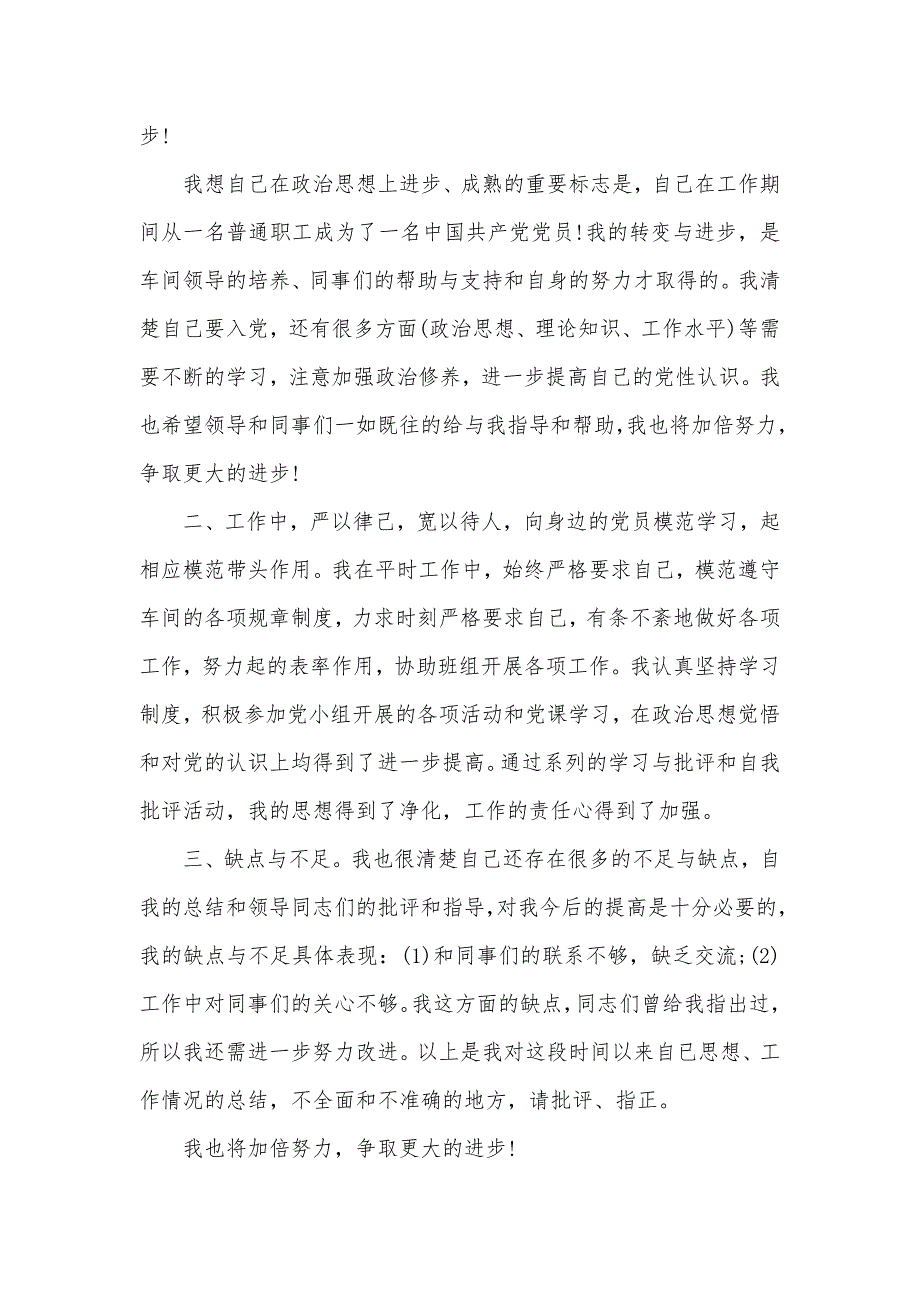 步!
我想自己在政治思想上进步、成熟的重要标志是，自己在工作期
间从一名普通职工成为了一名中国共产党党员!我的转变与进步，是
车间领导的培养、同事们的帮助与支持和自身的努力才取得的。我清
楚自己要入党，还有很多方面(政治思想、理论知识、工作水平)等需
要不断的学习，注意加强政治修养，进一步提高自己的党性认识。我
也希望领导和同事们一如既往的给与我指导和帮助,我也将加倍努力，
争取更大的进步!
二、工作中，严以律己，宽以待人，向身边的党员模范学习，起
相应模范带头作用。我在平时工作中，始终严格要求自己，模范遵守
车间的各项规章制度，力求时刻严格要求自己，有条不紊地做好各项
工作，努力起的表率作用，协助班组开展各项工作。我认真坚持学习
制度，积极参加党小组开展的各项活动和党课学习，在政治思想觉悟
和对党的认识上均得到了进一步提高。通过系列的学习与批评和自我
批评活动，我的思想得到了净化，工作的责任心得到了加强。
三、缺点与不足。我也很清楚自己还存在很多的不足与缺点，自
我的总结和领导同志们的批评和指导,对我今后的提高是十分必要的，
我的缺点与不足具体表现：(1)和同事们的联系不够，缺乏交流;(2)
工作中对同事们的关心不够。我这方面的缺点,同志们曾给我指出过，
所以我还需进一步努力改进。以上是我对这段时间以来自己思想、工
作情况的总结，不全面和不准确的地方，请批评、指正。
我也将加倍努力，争取更大的进步!